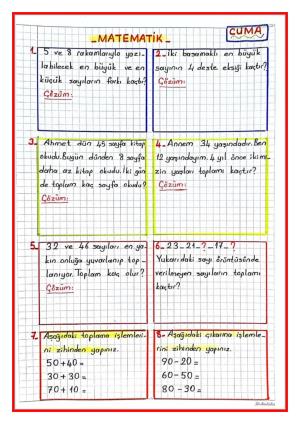 MATEMATİK
CUMA
1. 5 ve 8 rakamlarıyla yazı-
labilecek en büyük ve en
küçük sayıların farkı kaçtır?
Çözüm:
2. İki basamaklı en büyük
sayının 4 deste eksiği kaçtır?
Çözüm:
3. Ahmet dün 45 sayfa kitap
okudu. Bugün dünden 8 sayfa
daha az kitap okudu. İki gün
de toplam kaç sayfa okudu?
Çözüm:
4. Annem 34 yaşındadır. Ben
12 yaşındayım. 4 yıl önce ikimi-
zin yaşları toplamı kaçtır?
Çözüm:
5. 32 ve 46 sayıları en ya-
kın onluğa yuvarlanıp top-
lanıyor. Toplam kaç olur?
Çözüm:
6. 23-21-?-17-?
Yukarıdaki sayı örüntüsünde
verilmeyen sayıların toplamı
kaçtır?
7. Aşağıdaki toplama işlemleri-
ni zihinden yapınız.
50+40=
30+30=
70+10=
8. Aşağıdaki çıkarma işlemle-
rini zihinden yapınız.
90-20=
60-50=
80-30=